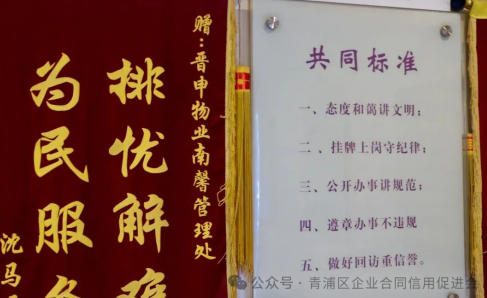 赠：晋申物业南馨管理处
排忧解难
为民服务
沈马
共同标准
一、态度和蔼讲文明；
二、挂牌上岗守纪律；
三、公开办事讲规范；
四、遵章办事不违规
五、做好回访重信誉。
公众号·青浦区企业合同信用促进会